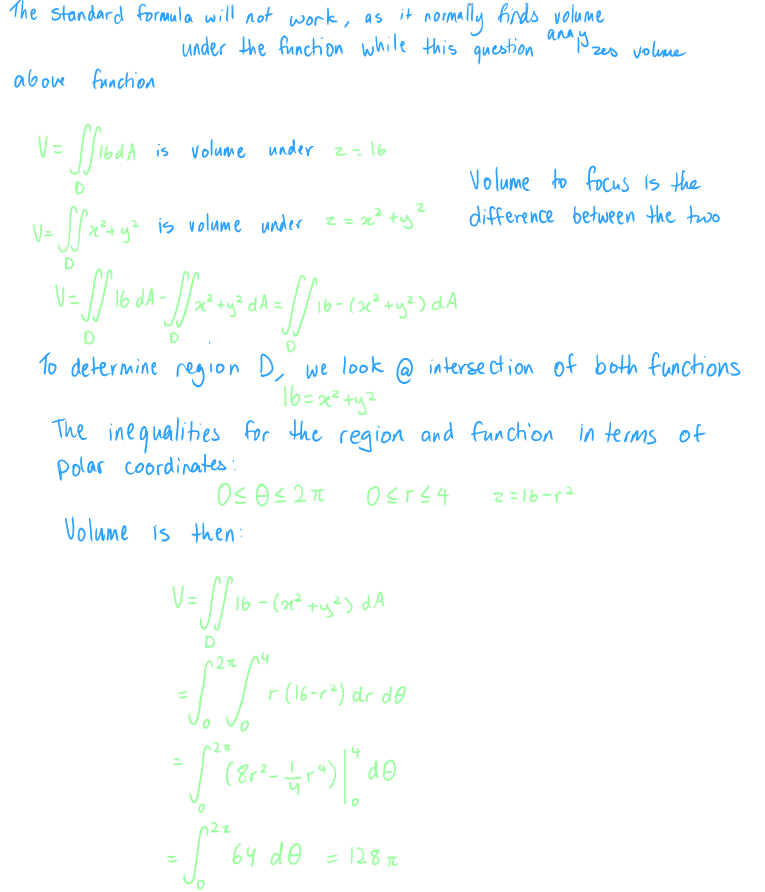 The standard formula will not work, as it normally finds volume
under the function while this question analyzes volume
above function
V = ∬_D 16 dA is volume under z = 16
V = ∬_D x² + y² is volume under z = x² + y²
Volume to focus is the
difference between the two
V = ∬_D 16 dA - ∬_D x² + y² dA = ∬_D 16 - (x² + y²) dA
To determine region D, we look @ intersection of both functions
16 = x² + y²
The inequalities for the region and function in terms of
polar coordinates:
0 ≤ θ ≤ 2π 0 ≤ r ≤ 4 z = 16 - r²
Volume is then:
V = ∬_D 16 - (x² + y²) dA
= ∫_0^{2π} ∫_0^4 r (16 - r²) dr dθ
= ∫_0^{2π} (8r² - 1/4 r⁴) |_0^4 dθ
= ∫_0^{2π} 64 dθ = 128π